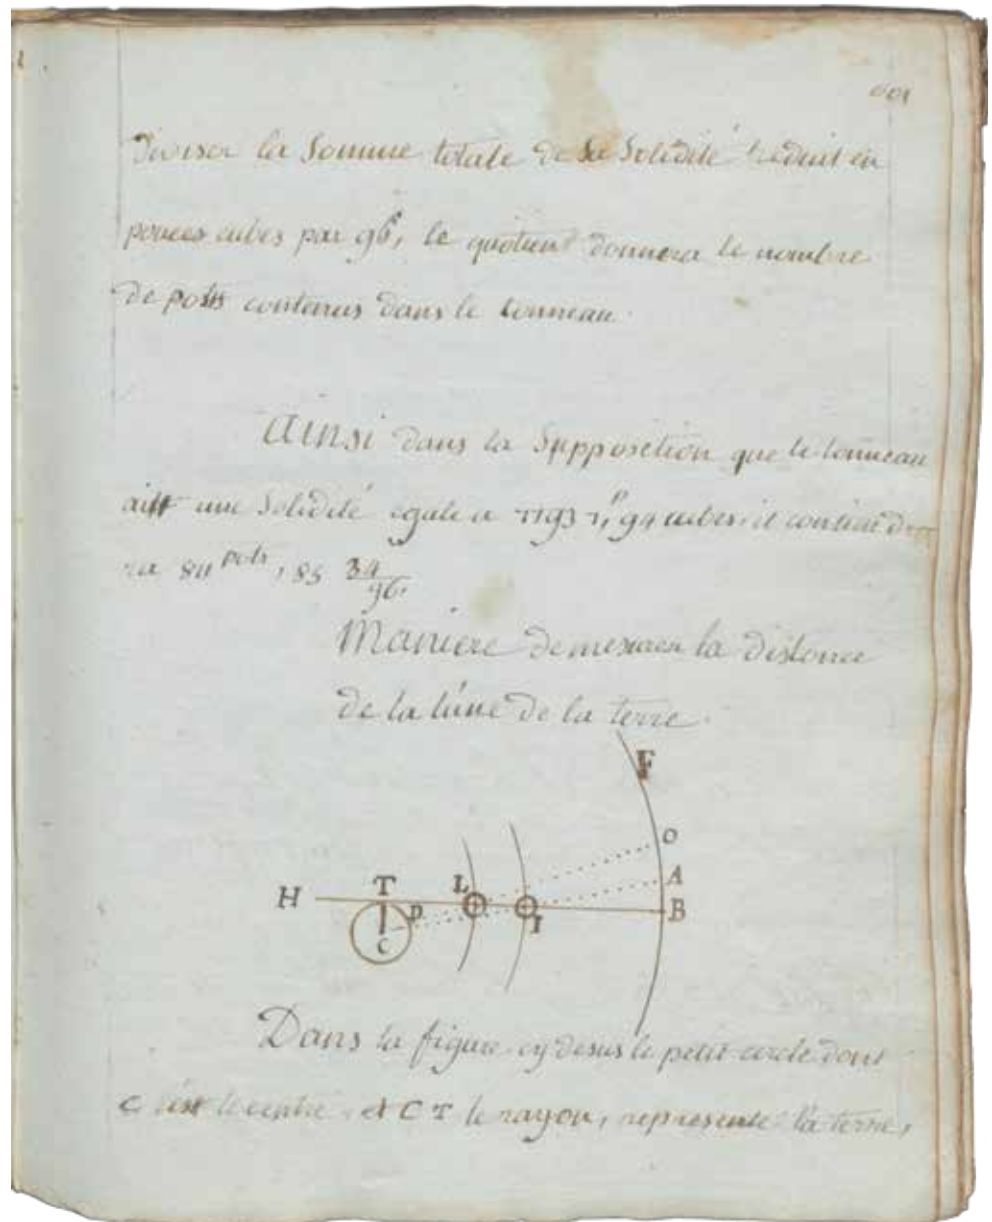 601
diviser la Somme totale de sa Solidité réduit en
pouces cubes par 96, le quotient donnera le nombre
de pots contenus dans le tonneau.
Ainsi dans la Supposition que le tonneau
ait une Solidité egale a cubes, il contiend
ra pots, 85 34/96.
Maniere de mesurer la distance
de la lúne de la terre.
F
O
A
H T L B
D I
C
Dans la figure cy desus le petit cercle dont
C est le centre et C T le rayon, represente la terre,